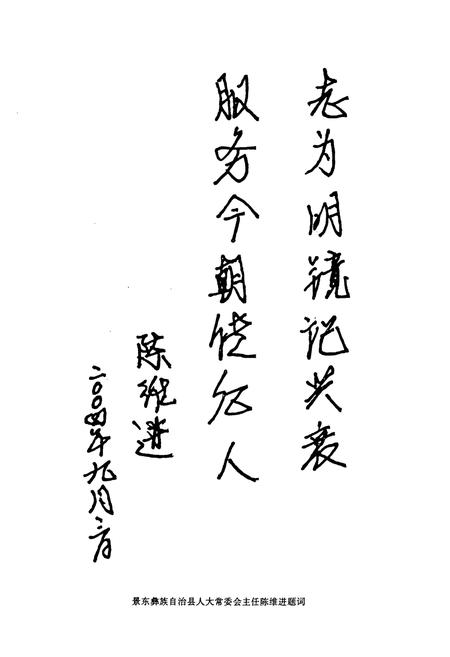 志为明镜记兴衰
服务今朝人
陈维進
二〇〇四年九月三日
景东彝族自治县人大常委会主任陈维进题词